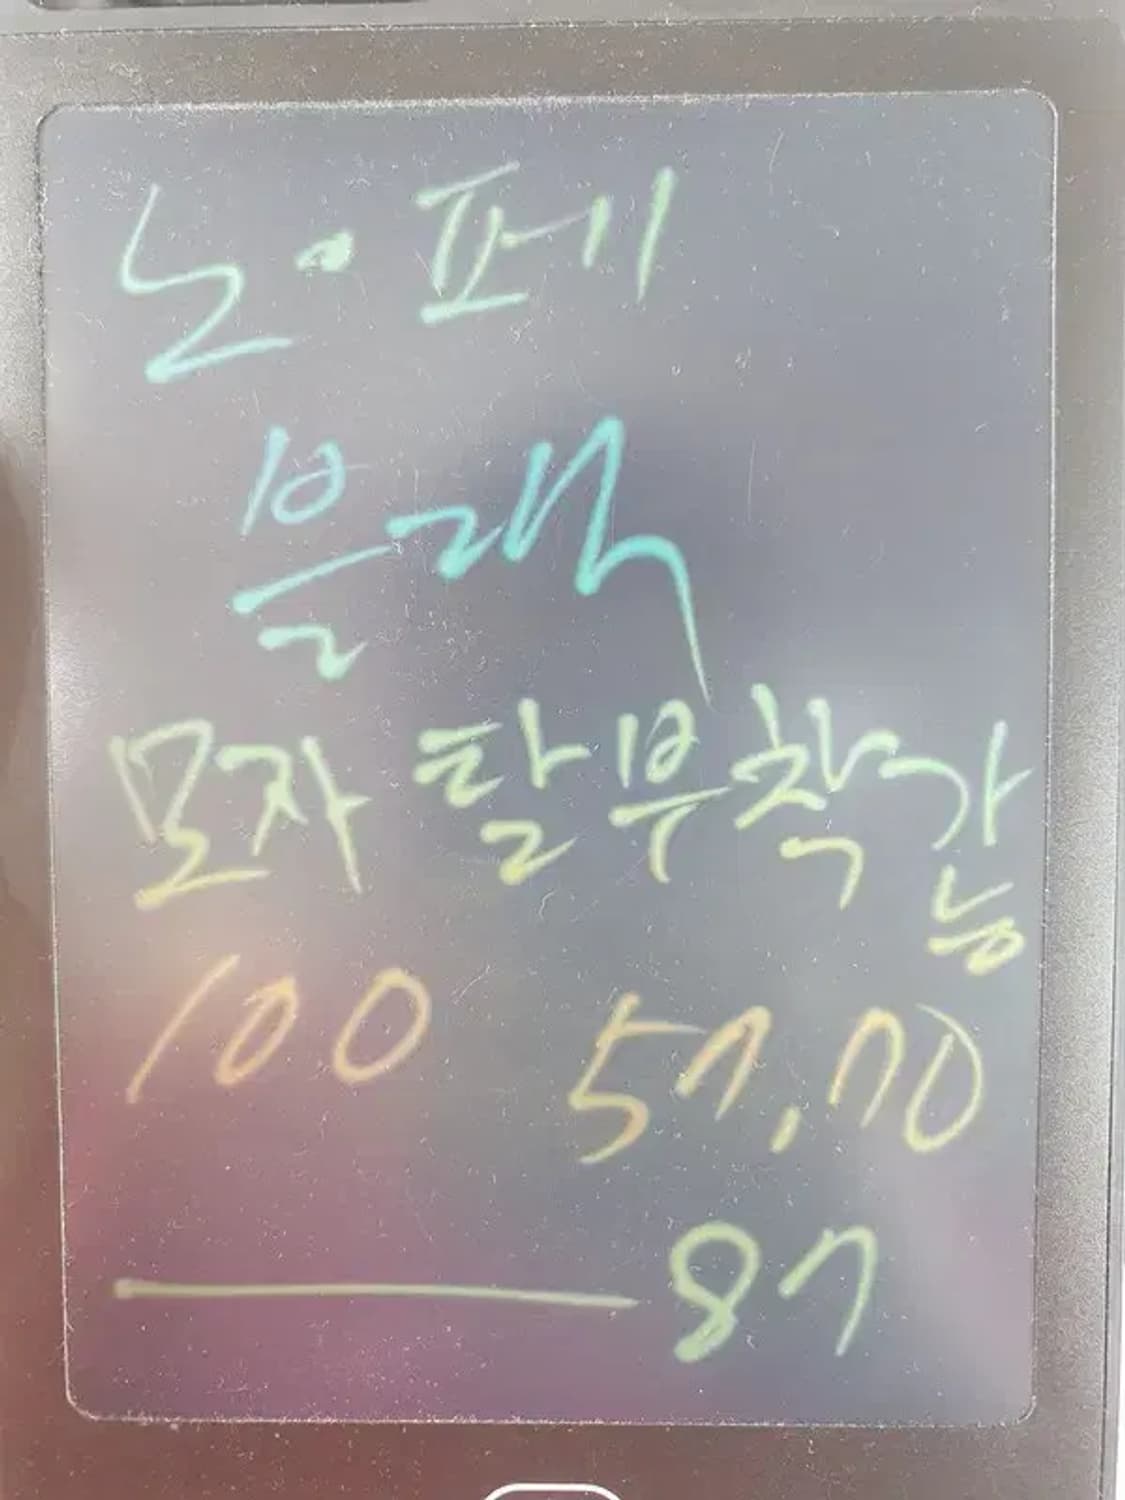 노·페
블랙
모자 탈부착가
능
100 57,70
87